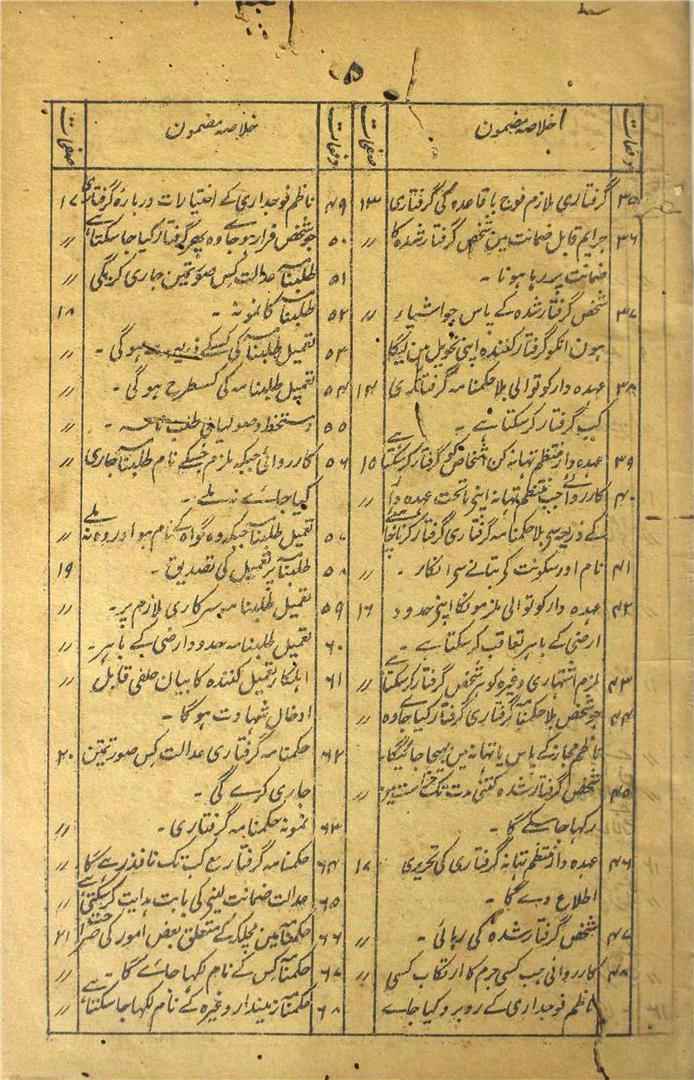 ۵
دفعات
خلاصہ مضمون
صفحات
۳۵ گرفتاری ملازم فوج باقاعدہ کی گرفتاری ۱۳
۳۶ جرایم قابل ضمانت مین شخص گرفتار شدہ کا 〃
ضمانت پر رہا ہونا ۔
۳۷ شخص گرفتار شدہ کے پاس جو اشیاء 〃
ہون انکو گرفتار کنندہ اپنی تحویل مین لیگا
۳۸ عہدہ دار کوتوالی بلا حکمنامہ گرفتاری ۱۴
کب گرفتار کرسکتا ہے ۔
۳۹ عہدہ دار منتظم تہانہ کن اشخاص کو گرفتار کرسکتا ہے ۱۵
۴۰ کارروائی جب منتظم تہانہ اپنی ماتحت عہدہ دار 〃
کے ذریعہ سی بلا حکمنامہ گرفتاری گرفتار کرنا چاہے
۴۱ نام اور سکونت کے بتانے سی انکار ۔ 〃
۴۲ عہدہ دار کوتوالی ملزمونکا اپنی حدود ۱۶
ارضی کے باہر تعاقب کرسکتا ہے ۔
۴۳ ملزم اشتہاری وغیرہ کو ہر شخص گرفتار کرسکتا ہے 〃
۴۴ جو شخص بلا حکمنامہ گرفتاری گرفتار کیا جاوے وہ 〃
ناظم مجاز کے پاس یا تہانہ مین بہیجا جائیگا 〃
۴۵ شخص گرفتار شدہ کتنی مدت تک حراست مین 〃
رکہا جاسکے گا ۔
۴۶ عہدہ دار منتظم تہانہ گرفتاری کی تحریری ۱۷
اطلاع دے گا ۔
۴۷ شخص گرفتار شدہ کی رہائی ۔ 〃
۴۸ کارروائی جب کسی جرم کا ارتکاب کسی 〃
ناظم فوجداری کے روبرو کیا جاے
دفعات
خلاصہ مضمون
صفحات
۴۹ ناظم فوجداری کے اختیارات دربارۂ گرفتاری ۱۷
۵۰ جو شخص فرار ہوجاے وہ پہر گرفتار کیا جاسکتا ہے 〃
۵۱ طلبنامہ عدالت کس صورتمین جاری کریگی 〃
۵۲ طلبنامہ کا نمونہ ۔ ۱۸
۵۳ تعمیل طلبنامہ کی کسکے ذریعہ سے ہوگی ۔ 〃
۵۴ تعمیل طلبنامہ کی کسطرح ہوگی ۔ 〃
۵۵ دستخط وصولیابی طلبنامہ ۔ 〃
۵۶ کارروائی جبکہ ملزم جسکے نام طلبنامہ جاری 〃
کیا جاے نہ ملے ۔
۵۷ تعمیل طلبنامہ جبکہ وہ گواہ کے نام ہو اور وہ نہ ملے 〃
۵۸ طلبنامہ پر تعمیل کی تصدیق ۔ ۱۹
۵۹ تعمیل طلبنامہ سرکاری ملازم پر ۔ 〃
۶۰ تعمیل طلبنامہ حدود ارضی کے باہر ۔ 〃
۶۱ اہلکار تعمیل کنندہ کا بیان حلفی قابل 〃
ادخال شہادت ہوگا ۔
۶۲ حکمنامہ گرفتاری عدالت کس صورتمین ۲۰
جاری کرے گی ۔
۶۳ نمونہ حکمنامہ گرفتاری ۔ 〃
۶۴ حکمنامہ گرفتاری کب تک نافذ رہے گا 〃
۶۵ عدالت ضمانت لینی کی بابت ہدایت کرسکتی ہے 〃
۶۶ حکمنامہ مین مچلکہ کے متعلق بعض امور کی صراحت ۲۱
۶۷ حکمنامہ کس کے نام لکہا جائے گا ۔ 〃
۶۸ حکمنامہ زمیندار وغیرہ کے نام لکہا جاسکتا ہے 〃